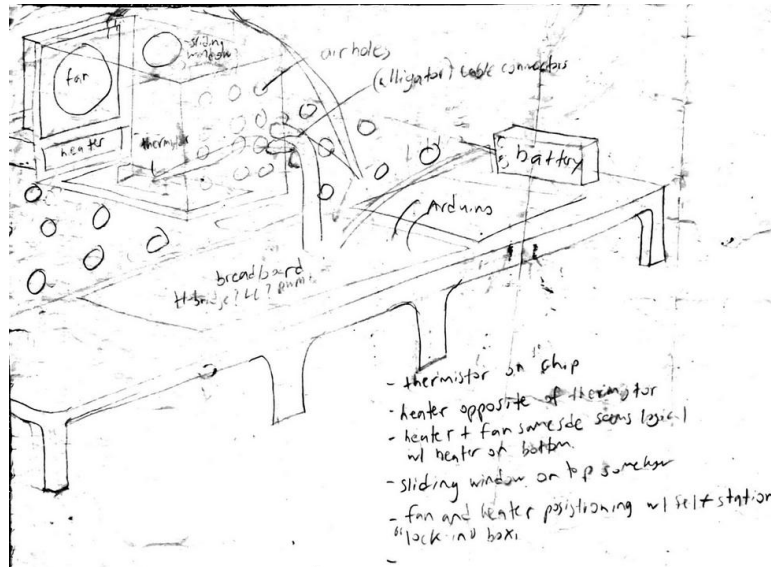 sliding
window
fan
air holes
(alligator) cable connectors
heater
thermistor
battery
Arduino
breadboard
H-bridge?
- thermistor on "chip
- heater opposite of thermistor
- heater + fan same side seems logical
w/ heater on bottom.
- sliding window on top somehow
- fan and heater positioning w/ self station
"lock in" box.
-